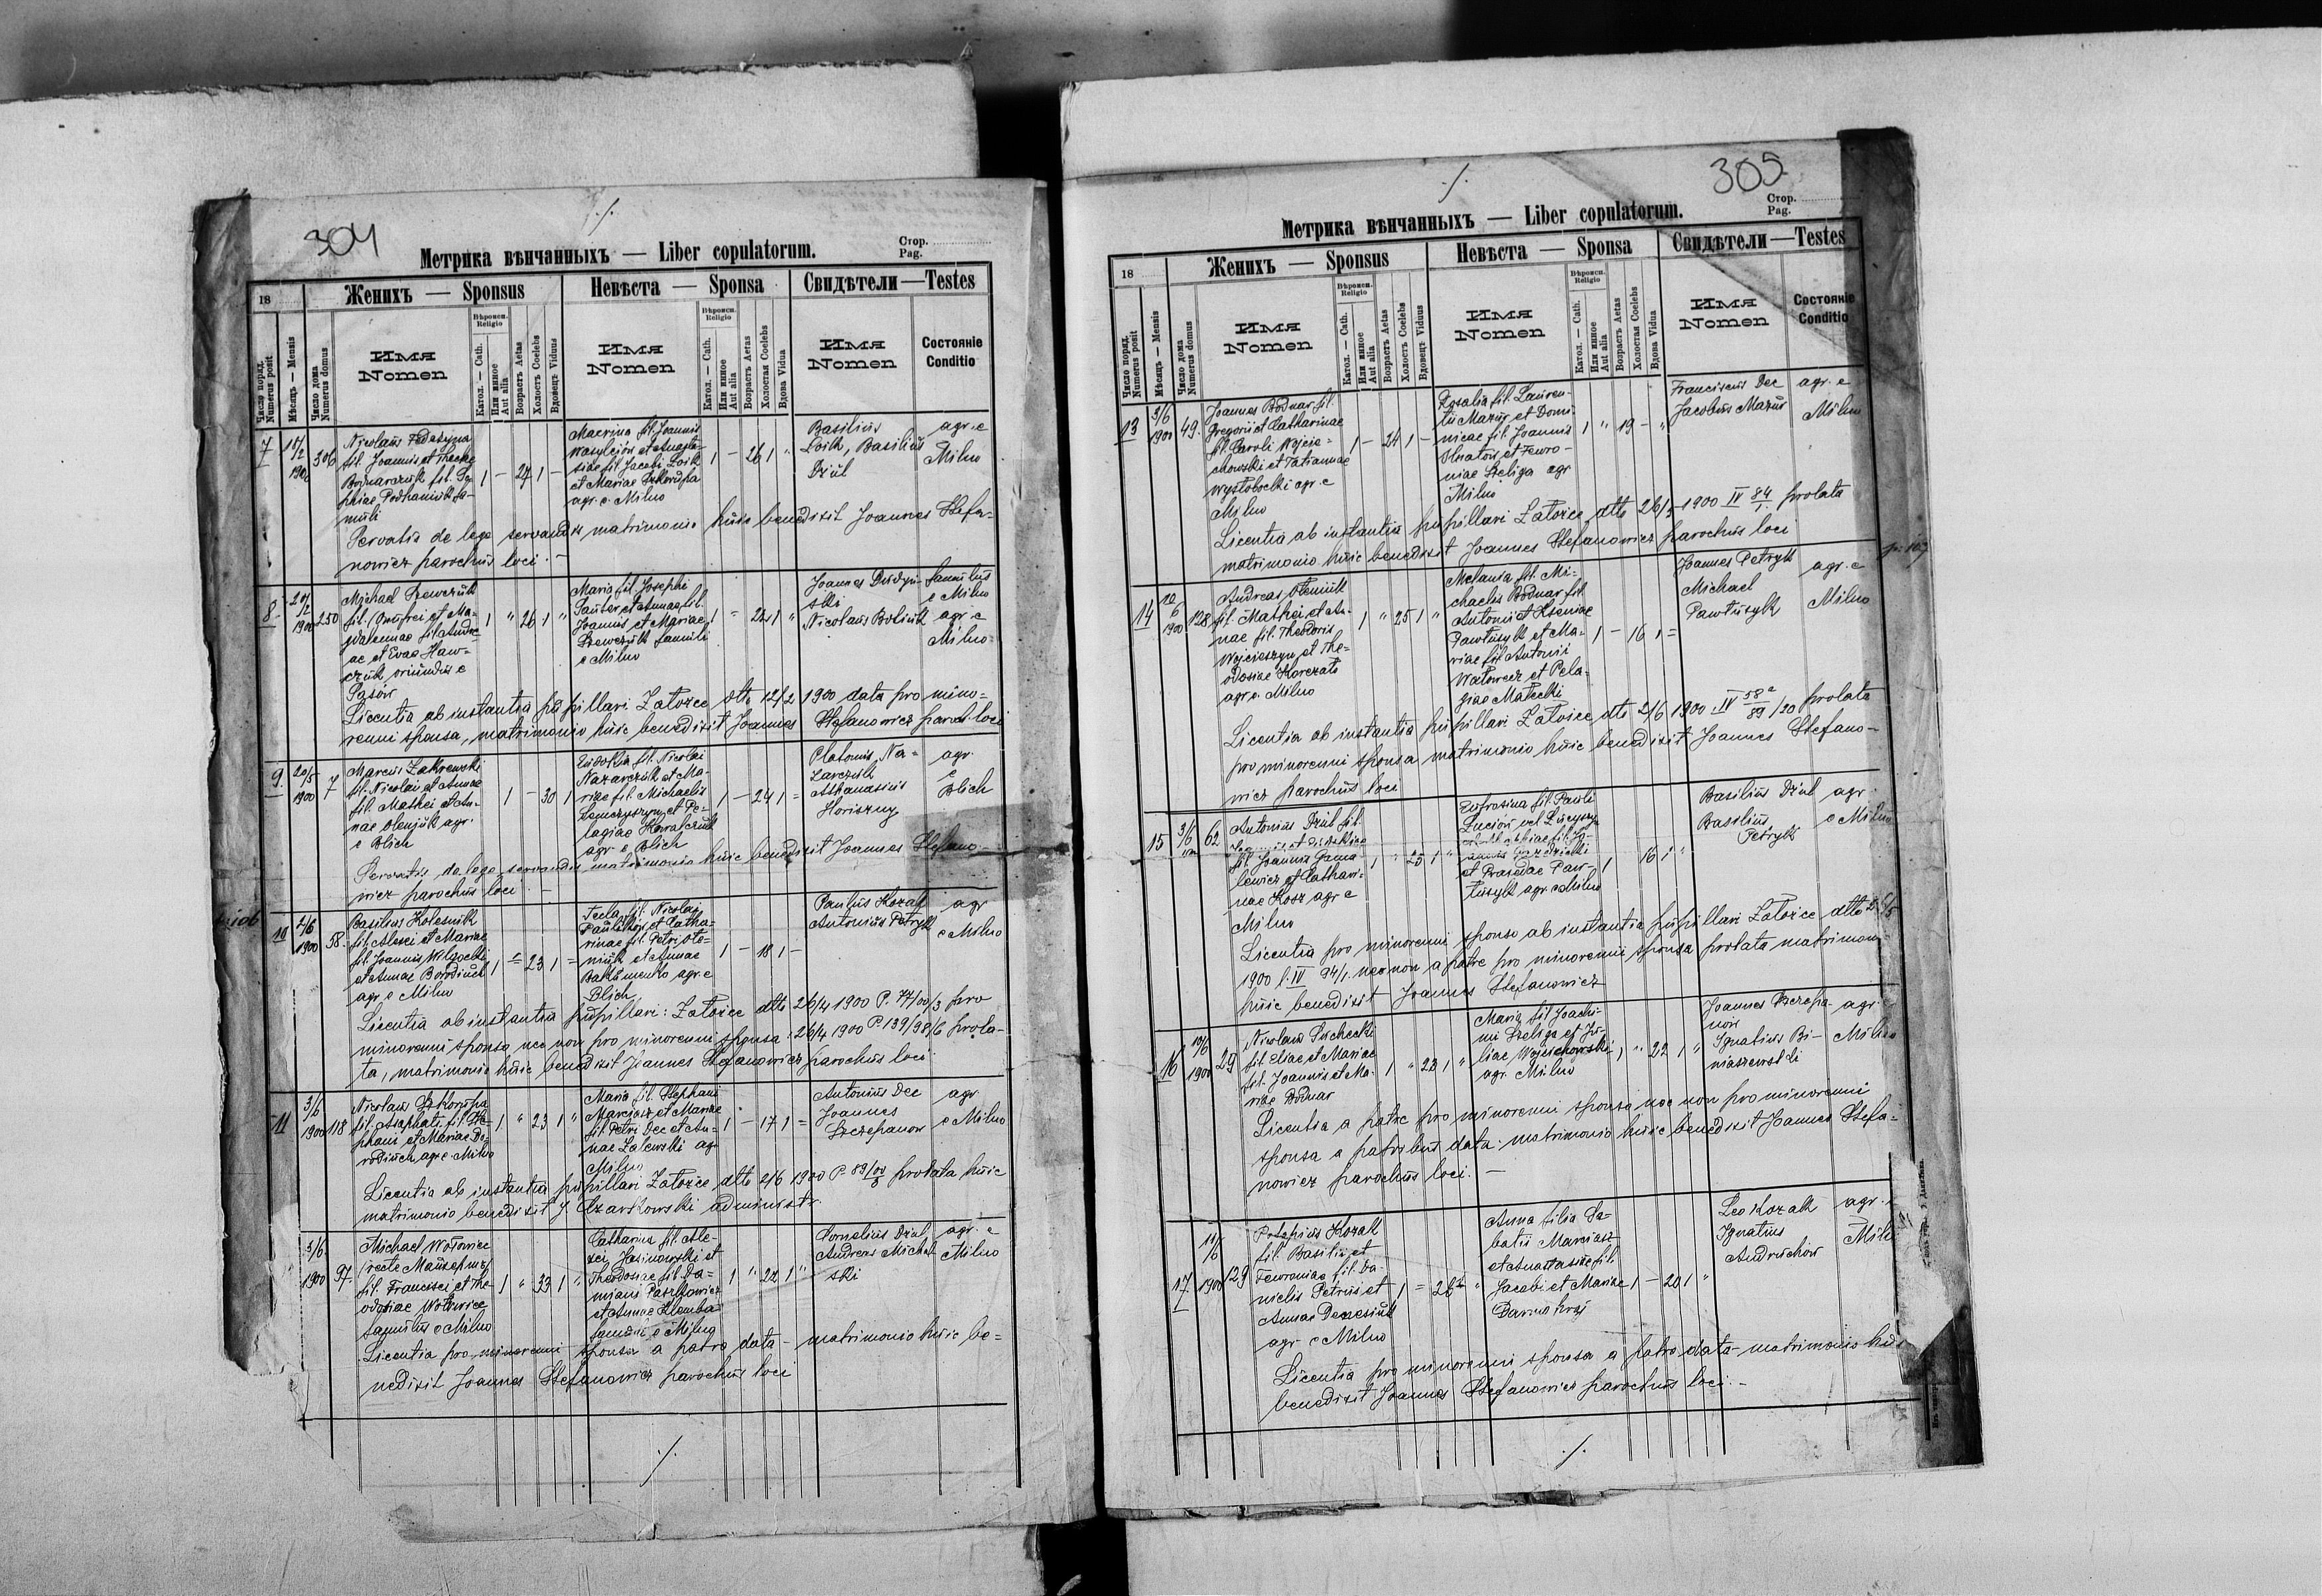 304
Метрика вѣнчанныхъ — Liber copulatorum.
Стор.
Pag.
18
Женихъ — Sponsus
Невѣста — Sponsa
Свидѣтели — Testes
Число поряд. Numerus posit
Мѣсяцъ — Mensis
Число дома Numerus domus
Имя
Nomen
Вѣроисп. Religio
Катол. — Cath.
Или инное Aut alia
Возрастъ Aetas
Холостъ Coelebs
Вдовецъ Viduus
Имя
Nomen
Вѣроисп. Religio
Катол. — Cath.
Или инное Aut alia
Возрастъ Aetas
Холостая Coelebs
Вдова Vidua
Имя
Nomen
Состояніе
Conditio
7
1900
306
Nicolaus
fil. Joannis et Theclae
Bodnarczuk fil.
Podhaniuk fa-
muli
1 – 24 1 –
Macrina fil. Joannis
Wasylciów et Anasta-
siae fil. Jacobi Loik
et Mariae Szkorupa
agr. e Milno
1 – 26 1 "
Basilius
Loik, Basilius
Dziul
agr. e
Milno
Servatis de lege servandis matrimonio huic benedixit Joannes Stefa-
nowicz parochus loci. —
8
1900
250
Michael Szewczuk
fil. Onufrei et Ma-
gdalenae fil. Andre-
ae et Evae Haw-
czuk oriundus e
1 " 26 1 "
Maria fil. Josephi
Sauter et Annae fil.
Joannis et Mariae
Szewczuk famuli
e Milno
1 = 24 1 "
Joannes
ski
Nicolaus
famulus
e Milno
agr. e
Milno
Licentia ab instantia pupillari Załozce dtto 12/2 1900 data pro mino-
renni sponsa, matrimonio huic benedixit Joannes Stefanowicz paroch. loci
9.
20/5
1900
7
Marcus Zakrewski
fil. Nicolai et Annae
fil. Mathei et An-
nae Olenjuk agr.
e Blich
1 – 30 1
Eudokia fil. Nicolai
Nazarczuk et Ma-
riae fil. Michaelis
et Pe-
lagiae Kowalczuk
agr. e Blich
1 – 24 1 =
Platonus Na-
zarczuk
Athanasius
Horiszny
agr
e
Blich
Servatis de lege servandis matrimonio huic benedixit Joannes Stefano-
wicz parochus loci. —
10
2/6
1900
58.
Basilius Kolesnik
fil. Alexei et Mariae
fil. Joannis
et Annae Borodiuch
agr. e Milno
1 = 23 1 =
Tecla fil. Nicolai
et Catha-
rinae fil. Petri Ste-
niuk et Annae
agr. e
Blich
1 – 18 1 –
Paulus Kozak
Antonius Petryk
agr
e Milno
Licentia ab instantia pupillari: Załozce dtto 26/4 1900 P. 77/00/3 pro
minorenni sponso nec non pro minorenni sponsa: 26/4 1900 P. 139/98/6 prola-
ta, matrimonio huic benedixit Joannes Stefanowicz parochus loci.
11
3/6
1900
118
Nicolaus Szkorupa
fil. Asaphati fil. Ste-
phani et Mariae Bo-
rodiuch agr. e Milno
1 " 23 1 "
Maria fil. Stephani
Marciasz et Mariae
fil. Petri Dec et An-
nae Zalewski agr.
Milno
1 – 17 1 =
Antonius Dec
Joannes
Szczepanow
agr.
e Milno
Licentia ab instantia pupillari Załozce dtto 2/6 1900 P. 89/00/8 prolata huic
matrimonio benedixit J. Czarkowski administ.
3/6
1900
97.
Michael Wołowiec
recte
fil. Francisci et The-
odosiae Wołowiec
famulus e Milno
1 " 33 1 "
Catharina fil. Ale-
xei Jasinowski et
Theodosiae fil. Da-
miani Paszkowicz
et Annae
famuli e Milno
1 " 22 1 "
Cornelius Dziul
Andreas Michal-
ski
agr. e
Milno
Licentia pro minorenni sponsa a patre data – matrimonio huic be-
nedixit Joannes Stefanowicz parochus loci
305
Метрика вѣнчанныхъ — Liber copulatorum.
Стор.
Pag.
18
Женихъ — Sponsus
Невѣста — Sponsa
Свидѣтели — Testes
Число поряд. Numerus posit
Мѣсяцъ — Mensis
Число дома Numerus domus
Имя
Nomen
Вѣроисп. Religio
Катол. — Cath.
Или инное Aut alia
Возрастъ Aetas
Холостъ Coelebs
Вдовецъ Viduus
Имя
Nomen
Вѣроисп. Religio
Катол. — Cath.
Или инное Aut alia
Возрастъ Aetas
Холостая Coelebs
Вдова Vidua
Имя
Nomen
Состояніе
Conditio
13
3/6
1900
49.
Joannes Bodnar fil.
Gregorii et Catharinae
fil. Caroli Wojcie-
chowski et Tatiannae
Wystobocki agr. e
Milno
1 – 24 1 –
Rosalia fil. Lauren-
tii Mazur et Domi-
nicae fil. Joannis
et Fewro-
niae Szeliga agr
Milno
1 " 19 – "
Franciscus Dec
Jacobus Mazur
agr. e
Milno
Licentia ab instantia pupillari Załozce dtto 26/5 1900 IV 84/1 prolata
matrimonio huic benedixit Joannes Stefanowicz parochus loci
14
1900
128
Andreas
fil. Mathei et An-
nae fil. Theodoris
Wojcieszyn et The-
odosiae
agr. e Milno
1 " 25 1 "
Melania fil. Mi-
chaelis Bodnar fil.
Antonii et Kseniae
Pawłusyk et Ma-
riae fil. Antonii
Wołowiec et Pela-
giae Małecki
1 – 16 1 =
Joannes Petryk
Michael
Pawłusyk
agr. e
Milno
Licentia ab instantia pupillari Załozce dtto 2/6 1900 IV 58a/89/20 prolata
pro minorenni sponsa matrimonio huic benedixit Joannes Stefano-
wicz parochus loci
15
3/6
62
Antonius Dziul fil.
fil. Joannis Grena-
lewicz et Cathari-
nae Kosz agr e
Milno
1 " 25 1 "
Eufrosina fil. Pauli
et Praxedae Paw-
łusyk agr. e Milno
1 16 1 "
Basilius Dziul
Basilius
Petryk
agr.
e Milno
Licentia pro minorenni sponso ab instantia pupillari Załozce dtto
1900 l. IV 94/1. nec non a patre pro minorenni sponsa prolata matrimon
huic benedixit Joannes Stefanowicz
16
10/6
1900
29
Nicolaus Suchecki
fil. Eliae et Mariae
fil. Joannis et Ma-
riae Bodnar
1 " 23 1 "
Maria fil. Joachi-
mi Szeliga et Ju-
liae Wojciechowski
agr. Milno
1 " 22 1 "
Joannes Szczepa-
now
Ignatius Bi-
niaszewski
agr. e
Milno
Licentia a patre pro minorenni sponso nec non pro minorenni
sponsa a patribus data. matrimonio huic benedixit Joannes Stefa-
nowicz parochus loci. —
17
1900
129
Kozak
fil. Basilii et
Fewroniae fil. Da-
nielis Petrus et
Annae Denesiuk
agr. e Milno
1 =
Anna filia Sa-
batii Marciasz
et Anastasiae fil.
Jacobi et Mariae
1 – 20 1 "
Leo Kozak
Ignatius
Andruchow
agr. e
Milno
Licentia pro minorenni sponsa a patre data – matrimonio huic
benedixit Joannes Stefanowicz parochus loci. –